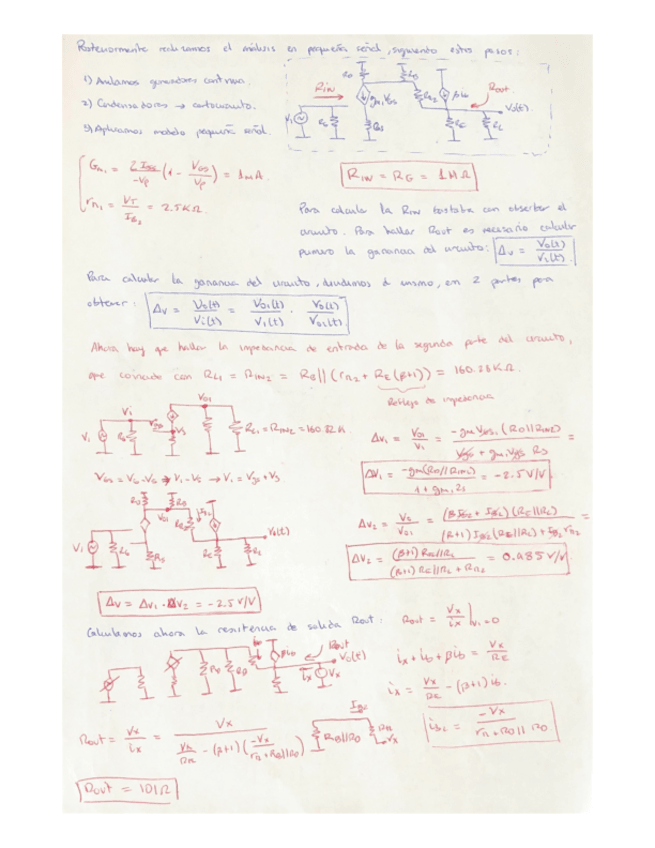 Posteriormente realizamos el análisis en pequeña señal, siguiendo estos pasos:
1) Anulamos generadores continua.
2) Condensadores → cortocircuito.
3) Aplicamos modelo pequeña señal.
RIN
gm, VGS
βib
Rout
Vo(t)
Vi
RG
RS
RE
RL
Gm1 = 2IDSS/-Vp (1 - VGS/Vp) = 1mA.
rπ1 = VT/IB2 = 2.5KΩ.
RIN = RG = 1MΩ
Para calcular la RIN bastaba con observar el
circuito. Para hallar Rout es necesario calcular
primero la ganancia del circuito: Δv = Vo(t)/Vi(t).
Para calcular la ganancia del circuito, dividimos el mismo, en 2 partes para
obtener: Δv = Vo(t)/Vi(t) = Vo1(t)/Vi(t) · Vo(t)/Vo1(t)
Ahora hay que hallar la impedancia de entrada de la segunda parte del circuito,
que coincide con RL1 = RIN2 = RB||(rπ2 + RE(β+1)) = 160.26KΩ.
Reflejo de impedancia
Vo1
Vi
VS
RL1 = RIN2 = 160.22K
Δv1 = Vo1/Vi = -gm Vgs1 (RD||RIN2)/Vgs + gm1 Vgs RS =
VGS = VG - VS → Vi - VS → Vi = Vgs + VS
ΔV1 = -gm(RD||RIN2)/1 + gm1 RS = -2.5 V/V
RD
RB
Vo1
Vi
RG
RS
RE
RL
Vo(t)
ΔV2 = Vo/Vo1 = (βIB2 + IB2)(RE||RL)/(β+1)IB2(RE||RL) + IB2 rπ2 =
ΔV2 = (β+1)RE||RL/(β+1)RE||RL + Rπ2 = 0.985 V/V
ΔV = ΔV1 · ΔV2 = -2.5 V/V
Calculamos ahora la resistencia de salida Rout: Rout = Vx/ix |Vi=0
βib
Rout
Vo(t)
RD
RB
ix
Vx
ix + ib + βib = Vx/RE
ix = Vx/RE - (β+1)ib.
Rout = Vx/ix = Vx/Vx/RE - (β+1)(-Vx/rπ + RB||RD)
IB2
RB||RD
Rπ
Vx
iB2 = -Vx/rπ + RD||RD
Rout = 101Ω